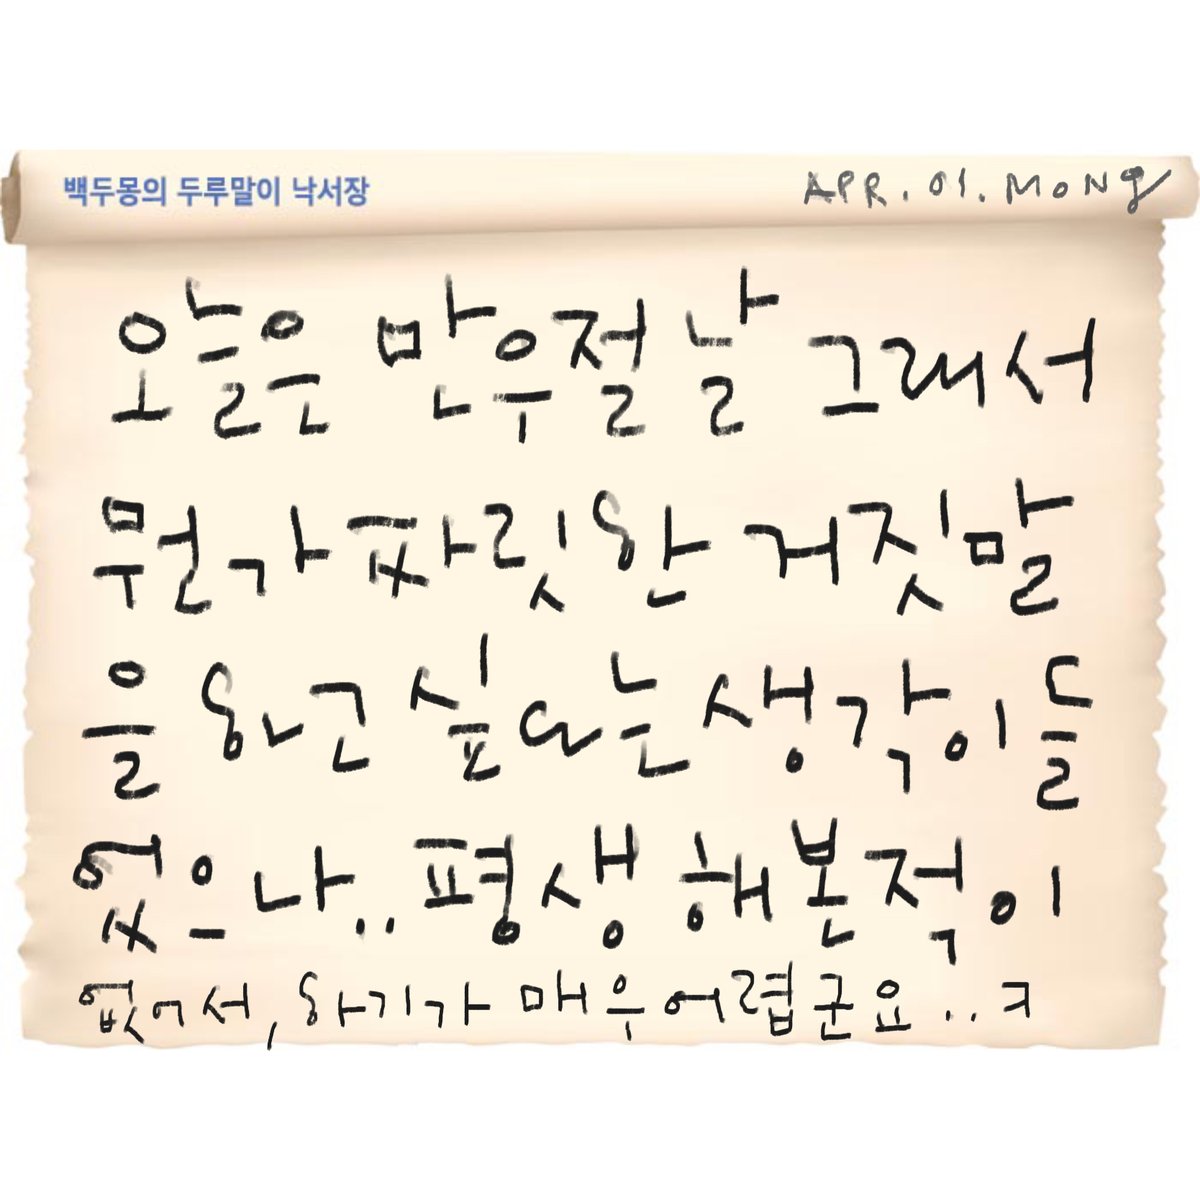 백두몽의 두루말이 낙서장
APR. 01. MONG
오늘은 만우절 날 그래서
뭔가 파릿한 거짓말
을 하고 싶다는 생각이 들
었으나.. 평생 해본적이
없어서, 하기가 매우 어렵군요..ㅋ